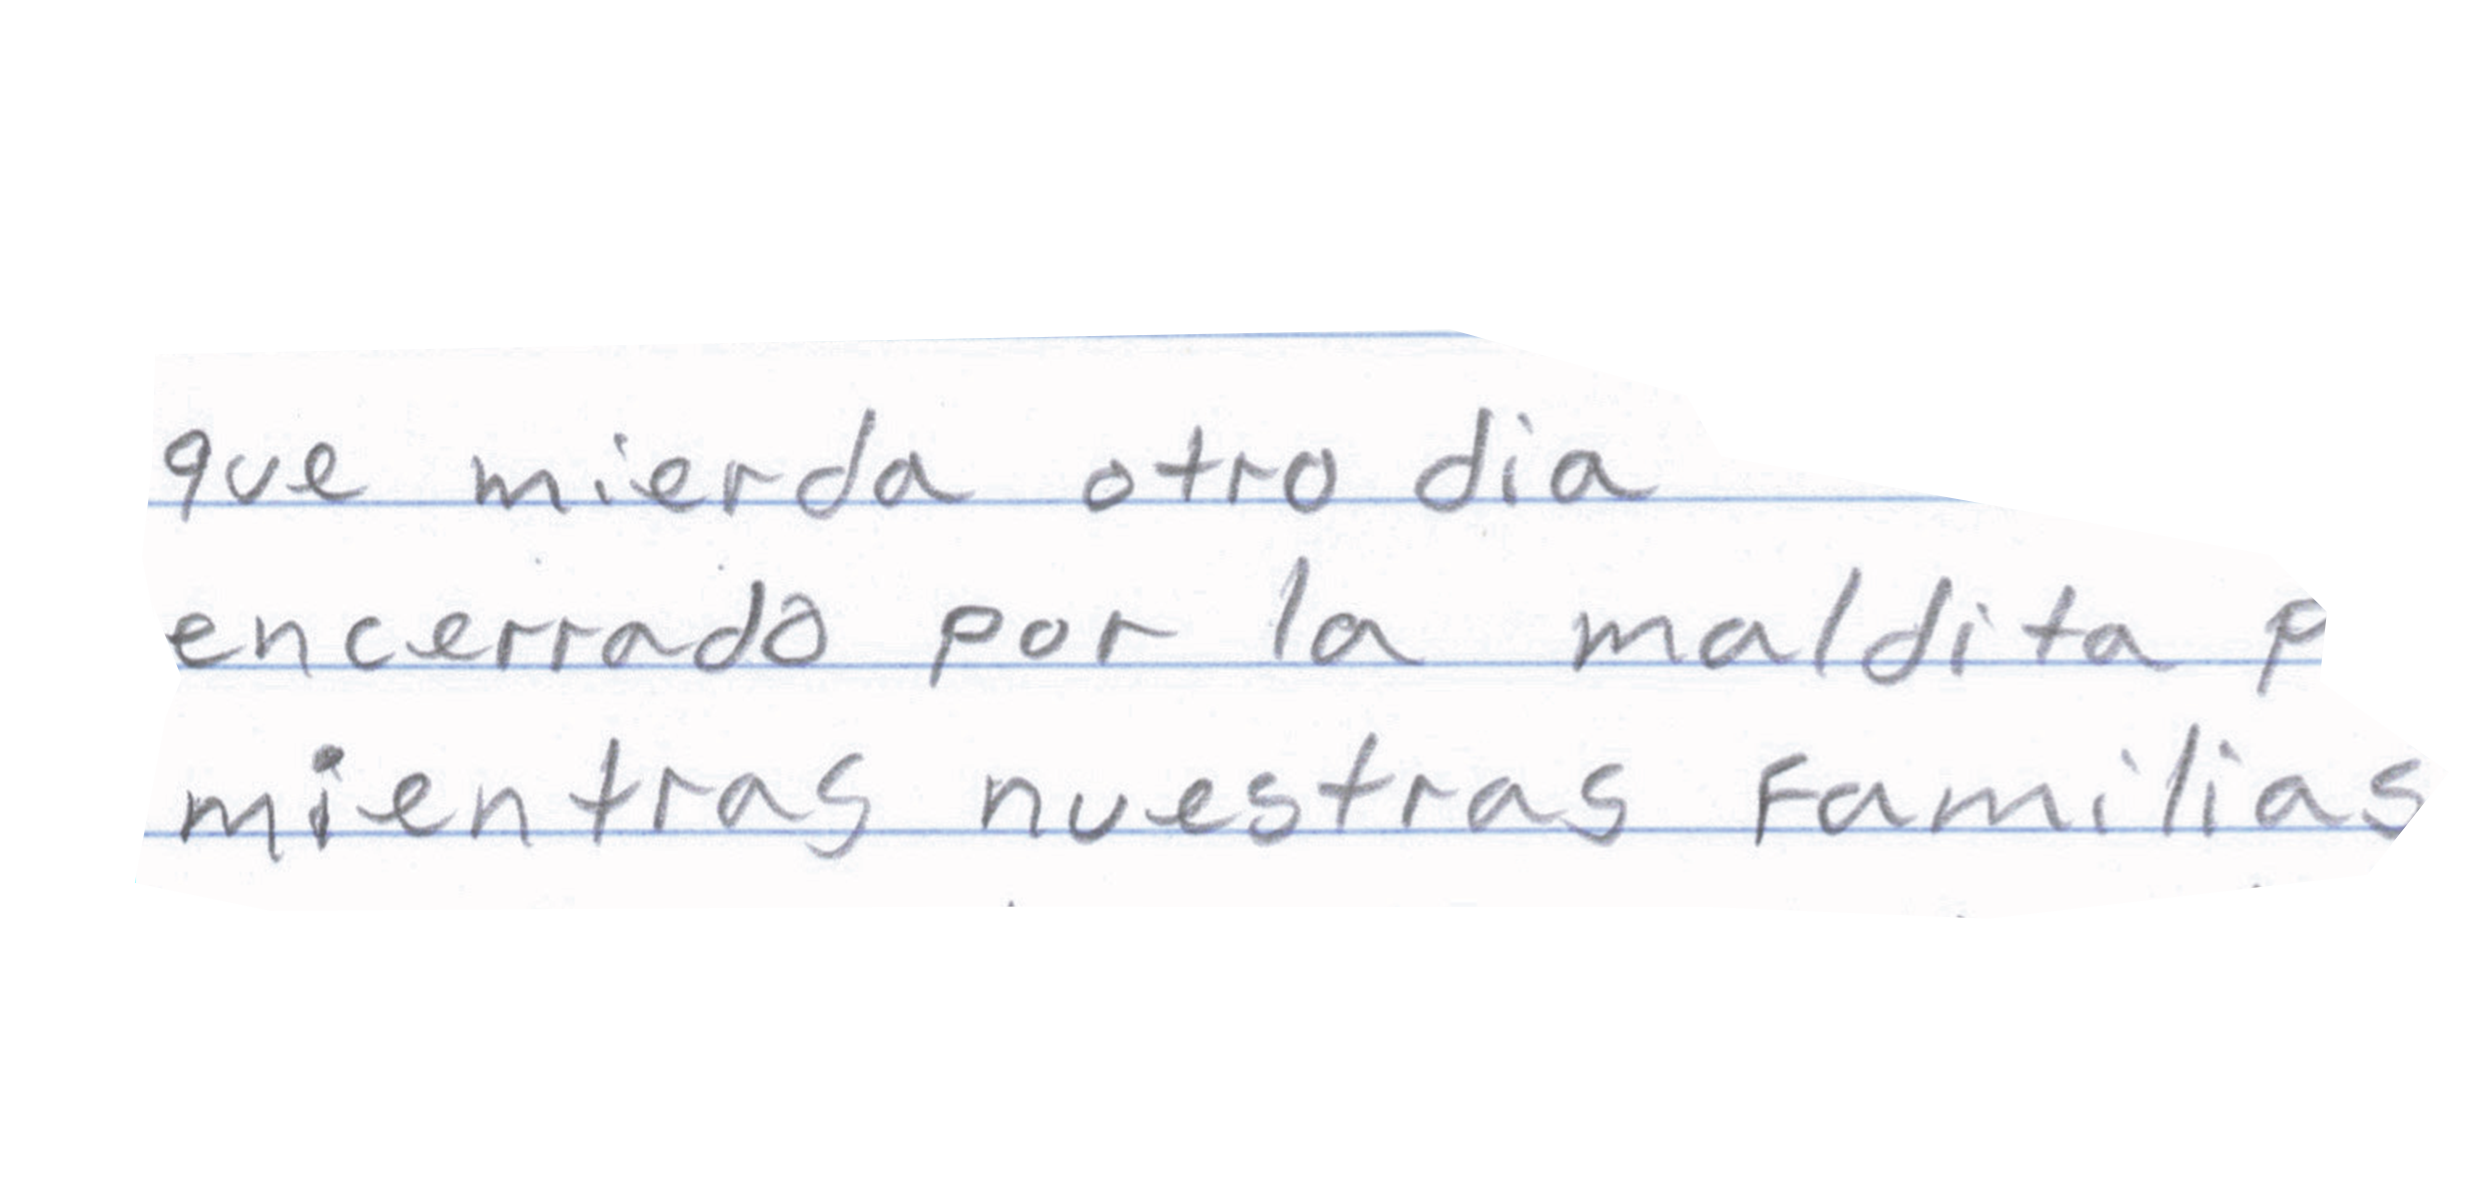 que mierda otro dia
encerrado por la maldita p
mientras nuestras familias